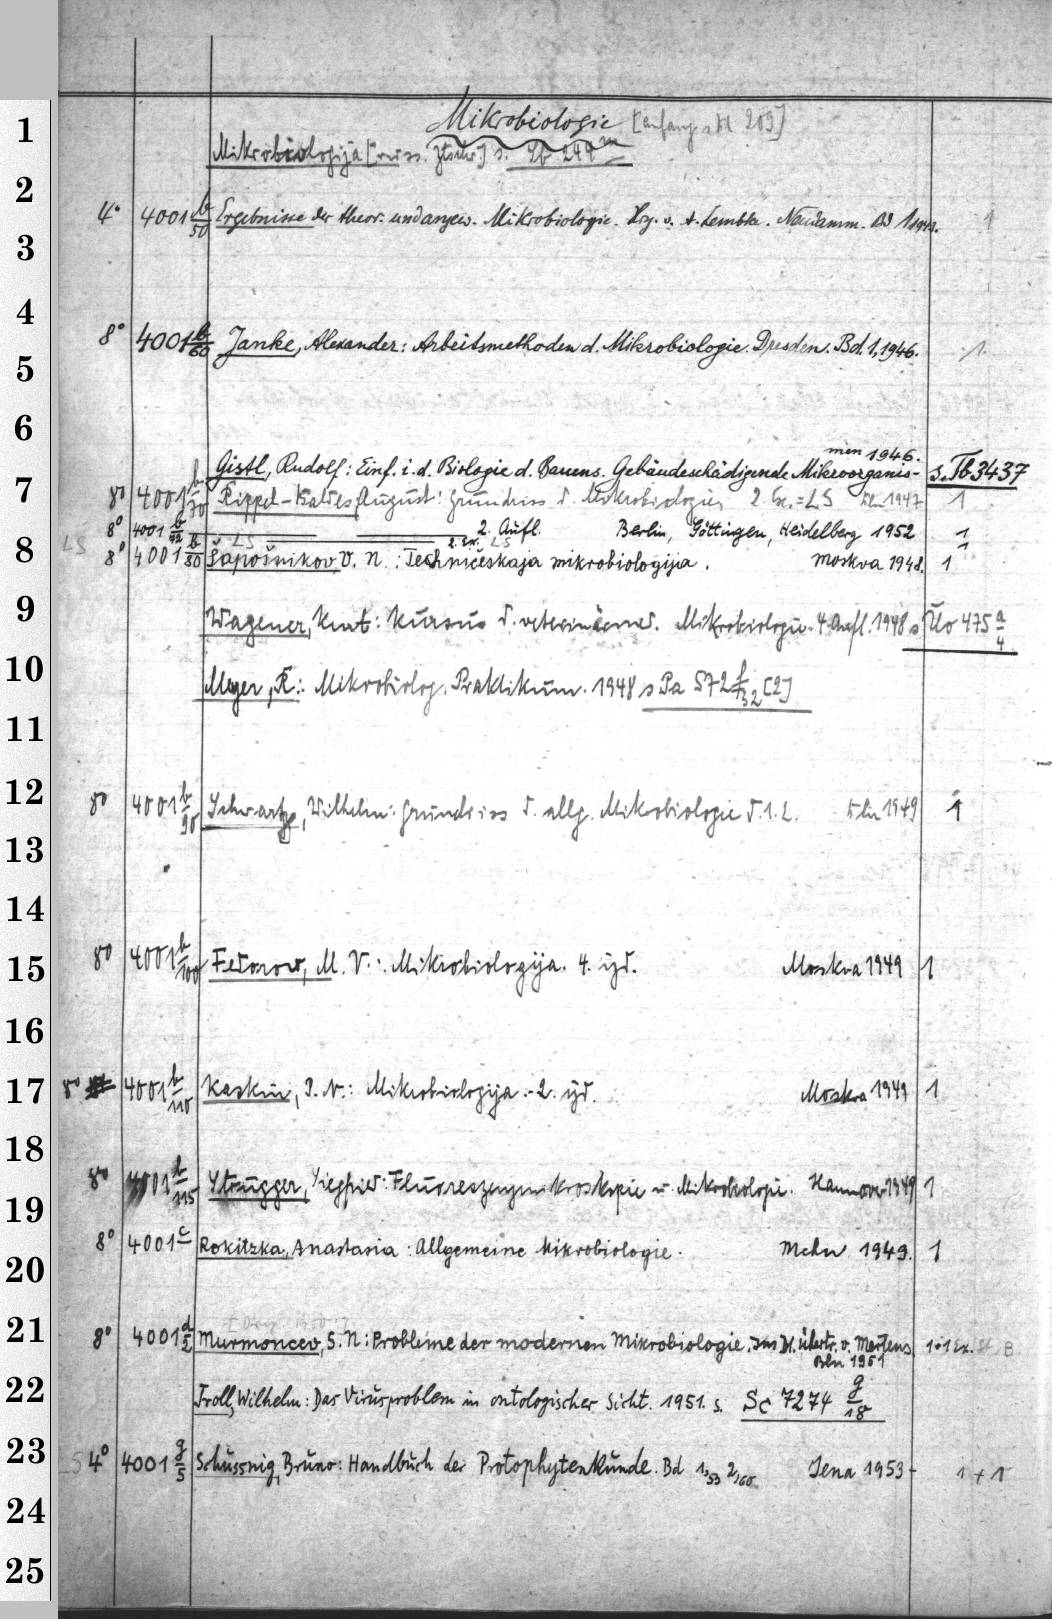 1
2
3
4
5
6
7
8
9
10
11
12
13
14
15
16
17
18
19
20
21
22
23
24
25
Mikrobiologie [anfang s. Bl 209]
Mikrobiologija [russ. Ztschr.] s. 249 m
4° 4001 b/50 Ergebnisse der theor. und angew. Mikrobiologie. Hrg. v. A. Lembke. Neudamm. Bd 1 1943. 1
8° 4001 b/60 Janke, Alexander: Arbeitsmethoden d. Mikrobiologie. Dresden. Bd. 1, 1946. 1
men 1946.
Gistl, Rudolf: Einf. i. d. Biologie d. Bauens. Gebäudeschädigende Mikroorganis- s. Tb 3437
8° 4001 b/70 Rippel-Baldes, August: Grundriss d. Mikrobiologie, 2. Ex. = LS Bln 1947 1
8° 4001 b/72 2. Aufl. Berlin, Göttingen, Heidelberg 1952 1
LS 2. Ex. LS
LS 8° 4001 b/80 Šapošnikov, V. N.: Techničeskaja mikrobiologija. Moskva 1948. 1
Wagener, Kurt: Kursus d. veterinärmed. Mikrobiologie. 4. Aufl. 1948 s Uo 475 a/4
Meyer, R.: Mikrobiolog. Praktikum. 1948 s Pa 572 f/32 [2]
8° 4001 b/90 Schwartz, Wilhelm: Grundriss d. allg. Mikrobiologie T. 1. 2. Bln 1949 1
8° 4001 b/100 Fedorov, M. V.: Mikrobiologija. 4. izd. Moskva 1949 1
8° 4001 b/110 Kaskin, P. N.: Mikrobiologija. - 2. izd. Moskva 1949 1
8° 4001 b/115 Strugger, Siegfried: Fluoreszenzmikroskopie u. Mikrobiologie. Hannover 1949 1
8° 4001 c Rokitzka, Anastasia: Allgemeine Mikrobiologie. Mchn 1949. 1
8° 4001 d/2 Murmoncev, S. N.: Probleme der modernen Mikrobiologie. Ins Dt. übertr. v. Mertens 1+1 Ex.
Bln 1951
Troll, Wilhelm: Das Virusproblem in ontologischer Sicht. 1951. s. Sc 7274 g/18
LS 4° 4001 g/5 Schussnig, Bruno: Handbuch der Protophytenkunde. Bd 1,53 2,60 Jena 1953- 1 + 1